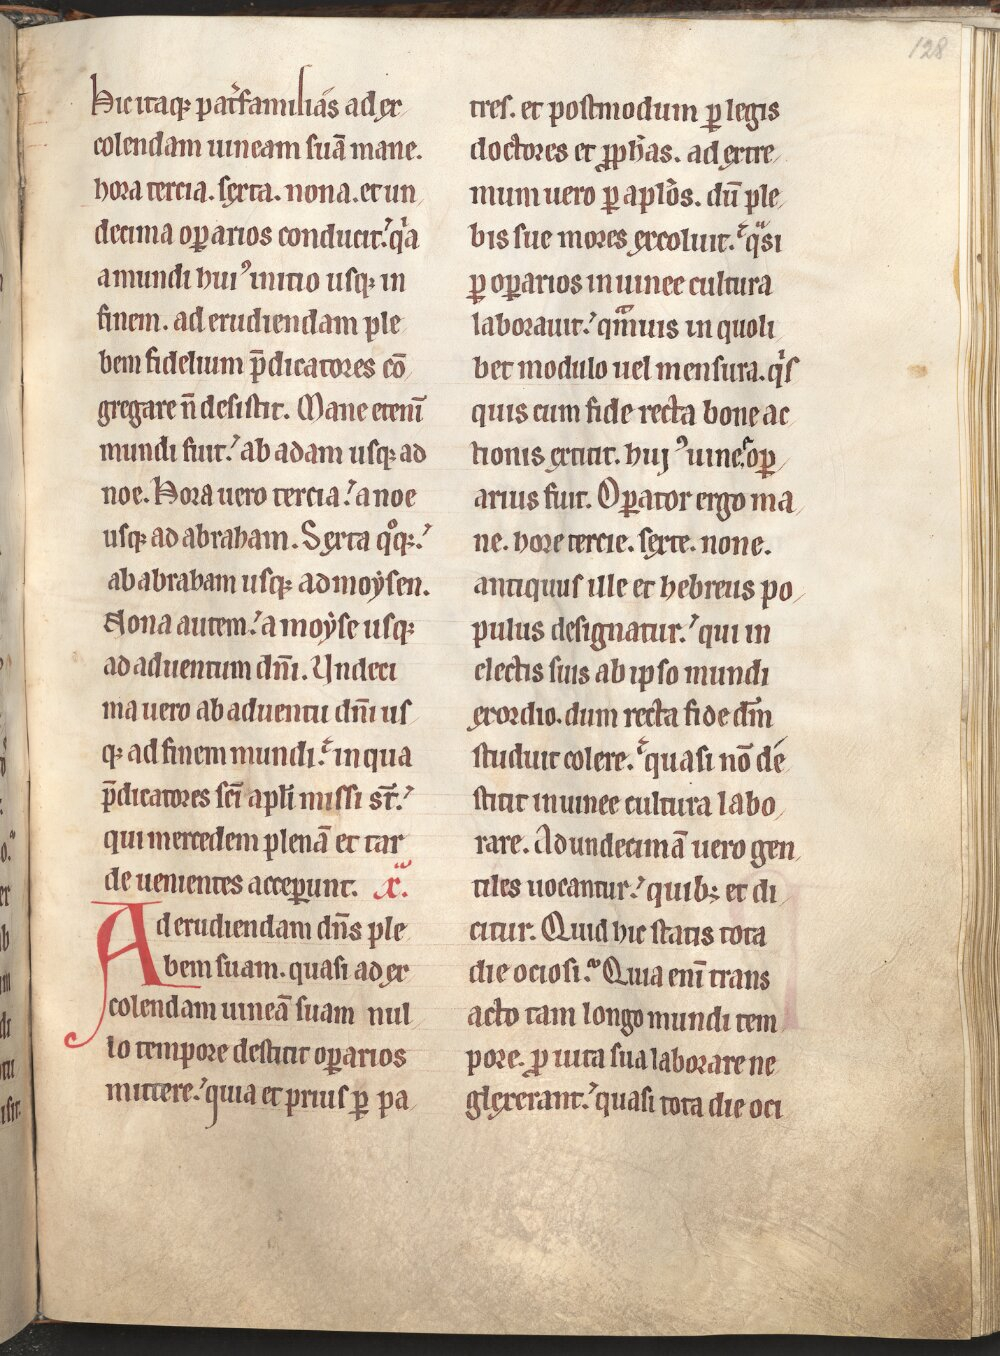 128
Hic itaq; pat̄familias ad ex
colendam uineam suā mane.
hora tercia. sexta. nona. et un
decima oꝑarios conducit. qͥa
a mundi huiꝰ initio usq; in
finem. ad erudiendam ple
bem fidelium p̄dicatores cō
gregare n̄ desistit. Mane etenī
mundi fuit. ab adam usq; ad
noe. Hora uero tercia. a noe
usq; ad abraham. Sexta qͦq;.
ab abraham usq; ad moẏsen.
Nona autem. a moẏse usq;
ad aduentum dn̄i. Undeci
ma uero ab aduentu dn̄i us
q; ad finem mundi. in qua
p̄dicatores sc̄i apl̄i missi st̄.
qui mercedem plenā et tar
de uenientes acceꝑunt. x.
Ad erudiendam dn̄s ple
bem suam. quasi ad ex
colendam uineā suam nul
lo tempore destitit oꝑarios
mittere. quia et prius ꝑ pa
tres. et postmodum ꝑ legis
doctores et ꝓph̄as. ad extre
mum uero ꝑ apl̄os. dū ple
bis sue mores excoluit. qᵃsi
ꝑ oꝑarios in uinee cultura
laborauit. qᵃmuis in quoli
bet modulo uel mensura. qͥs
quis cum fide recta bone ac
tionis extitit. hujꝰ uineę oꝑ
arius fuit. Oꝑator ergo ma
ne. hore tercie. sexte. none.
antiquus ille et hebreus po
pulus designatur. qui in
electis suis ab ipso mundi
exordio. dum recta fide dm̄
studuit colere. quasi nō de
stitit in uinee cultura labo
rare. Ad undecimā uero gen
tiles uocantur. quib; et di
citur. Quid hic statis tota
die ociosi. Quia enī trans
acto tam longo mundi tem
pore. ꝓ uita sua laborare ne
glexerant. quasi tota die oci